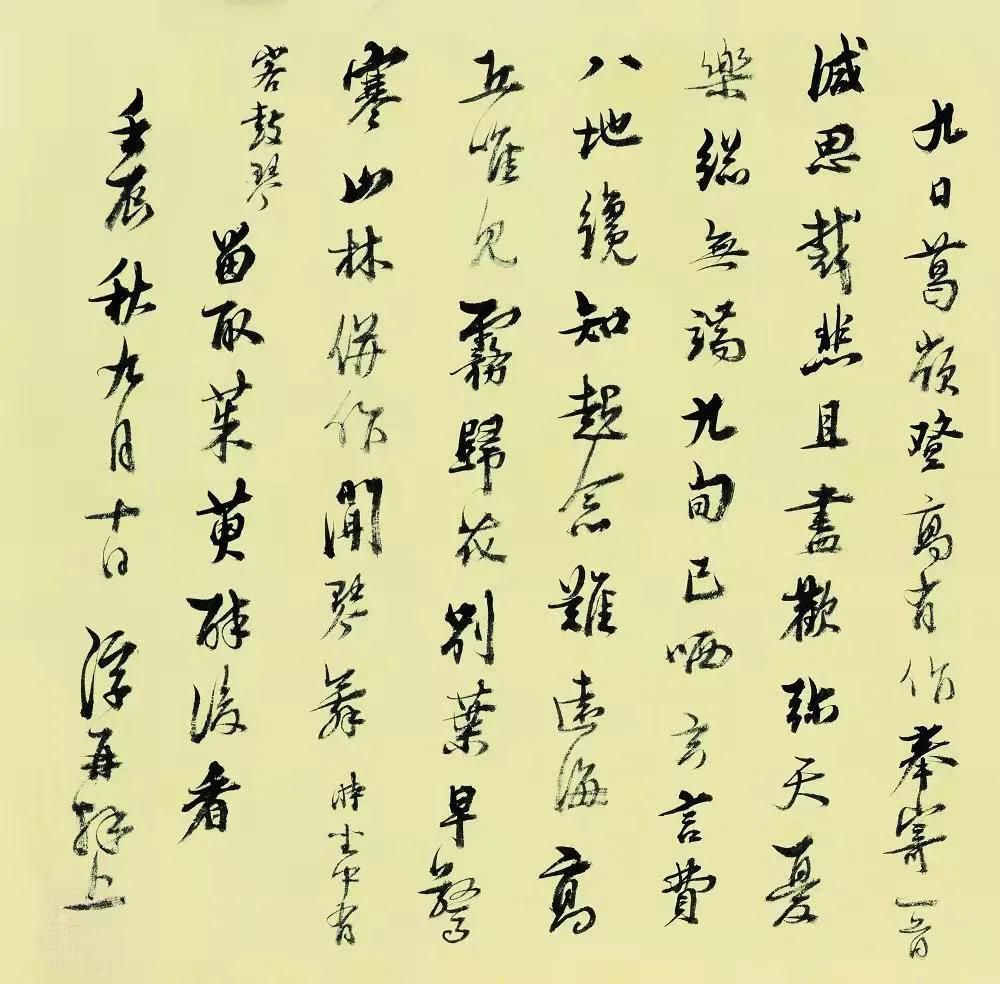 九日葛嶺登高有作奉寄一音
減思裁悲且盡歡弥天憂
樂總無端九旬已哂玄言費
八地纔知起念難遠海高
丘唯見霧歸花別葉早驚
寒山林併作閒琴舞 時坐中有
客鼓琴 留取茱萸醉後看
壬辰秋九月十日 浮再拜上